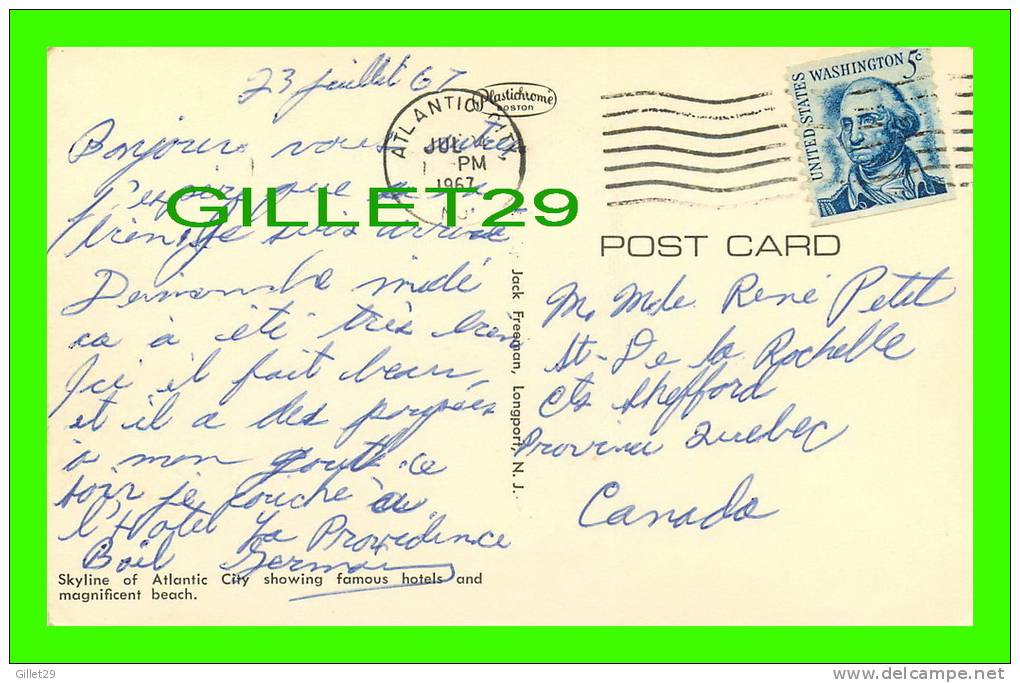 23 juillet 67
Bonjour vous autres
J'espère que
suis arrivé
Dimanche midi
ca à été très bien
Ici il fait beau,
et il a des poupées
à mon gout. ce
soir je couche a
l'Hotel La Providence
Germain
Skyline of Atlantic City showing famous hotels and
magnificent beach.
Jack Freeman, Longport, N. J.
Plastichrome
BOSTON
ATLANTIC CITY,
JUL
PM
1967
NJ
UNITED STATES
WASHINGTON 5c
POST CARD
M. Mde. René Petit
St-De la Rochelle
Cts Shefford
Province Quebec
Canada
GILLET29
Gillet29
www.delcampe.net